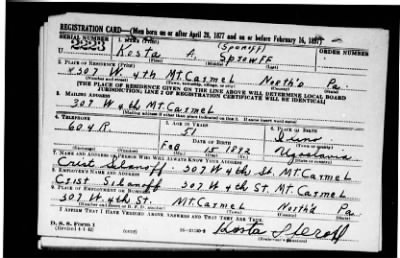 REGISTRATION CARD—(Men born on or after April 28, 1877 and on or before February 16, 1897)
SERIAL NUMBER 1. NAME (Print) (Sponoff) ORDER NUMBER
U 2223 Kosta A. Sprowff
(First) (Middle) (Last)
2. PLACE OF RESIDENCE (Print)
307 W 4th Mt. Carmel North'd Pa.
(Number and street) (Town, township, village, or city) (County) (State)
[THE PLACE OF RESIDENCE GIVEN ON THE LINE ABOVE WILL DETERMINE LOCAL BOARD
JURISDICTION; LINE 2 OF REGISTRATION CERTIFICATE WILL BE IDENTICAL]
3. MAILING ADDRESS
307 W 4th Mt. Carmel
[Mailing address if other than place indicated on line 2. If same insert word same]
4. TELEPHONE 5. AGE IN YEARS 6. PLACE OF BIRTH
604R 51
DATE OF BIRTH
Feb 15 1892 Ugoslavia
7. NAME AND ADDRESS OF PERSON WHO WILL ALWAYS KNOW YOUR ADDRESS
Crist Silanoff 307 W 4th St. Mt. Carmel
8. EMPLOYER'S NAME AND ADDRESS
Crist Silanoff 307 W 4th St. Mt. Carmel
9. PLACE OF EMPLOYMENT OR BUSINESS
307 W. 4th St. Mt. Carmel North'd Pa
(Number and street or R. F. D. number) (Town) (County) (State)
I AFFIRM THAT I HAVE VERIFIED ABOVE ANSWERS AND THAT THEY ARE TRUE.
D. S. S. Form 1
(Revised 4-1-42) (over) Kosta
(Registrant's signature)